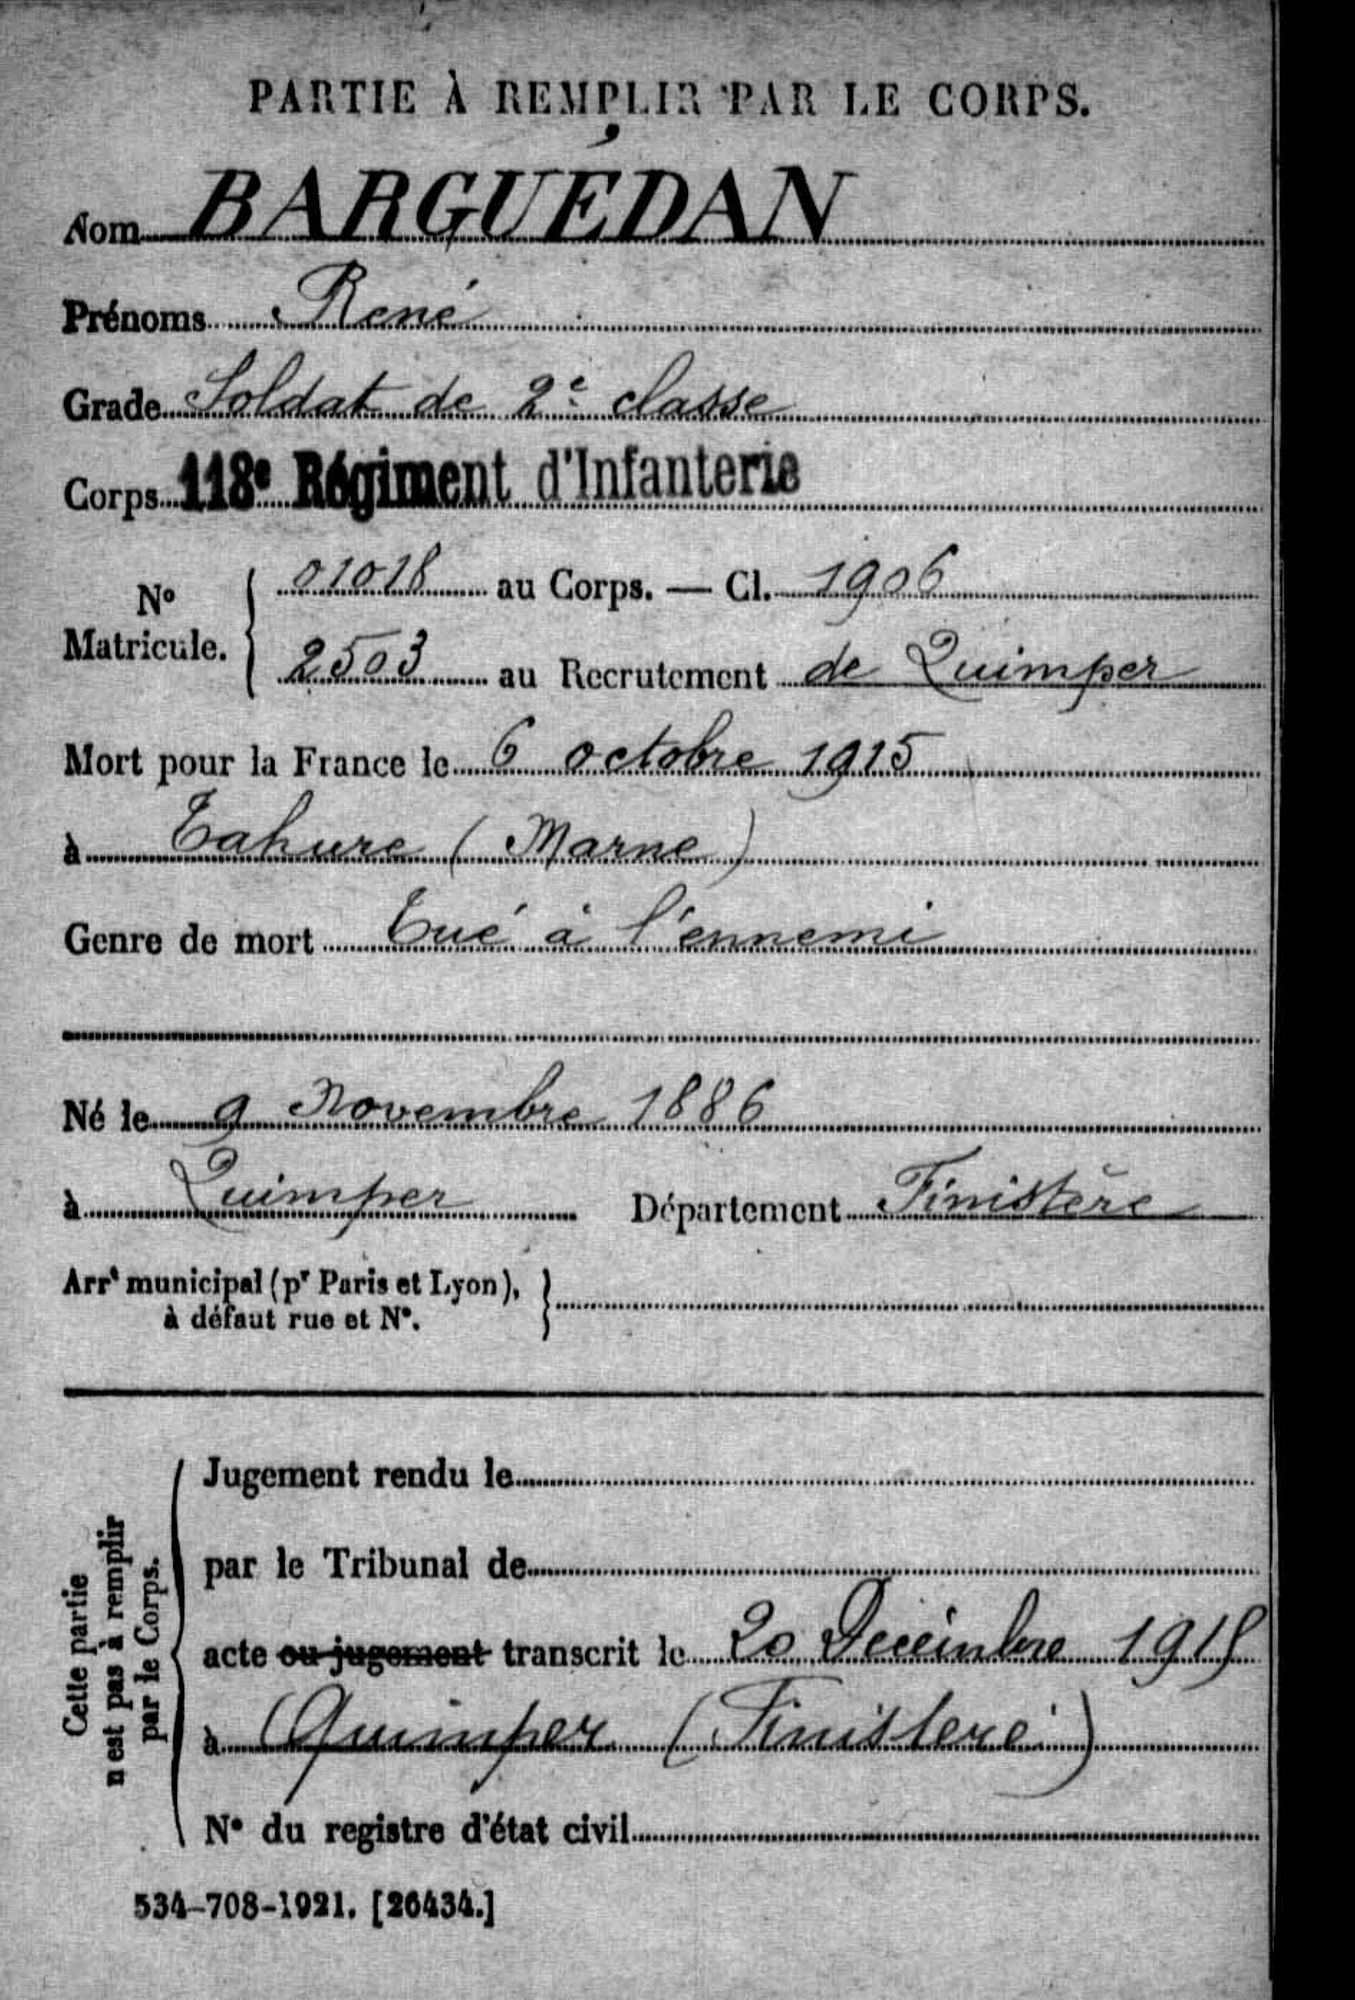 PARTIE À REMPLIR PAR LE CORPS.
Nom BARGUÉDAN
Prénoms René
Grade Soldat de 2e classe
Corps 118e Régiment d'Infanterie
No Matricule. 01018 au Corps. — Cl. 1906
2503 au Recrutement de Quimper
Mort pour la France le 6 octobre 1915
à Tahure (Marne)
Genre de mort Tué à l'ennemi
Né le 9 Novembre 1886
à Quimper Département Finistère
Arrt municipal (pr Paris et Lyon),
à défaut rue et No.
Cette partie
n'est pas à remplir
par le Corps.
Jugement rendu le
par le Tribunal de
acte ou jugement transcrit le 20 Décembre 1915
à Quimper (Finistère)
No du registre d'état civil
534-708-1921. [26434.]